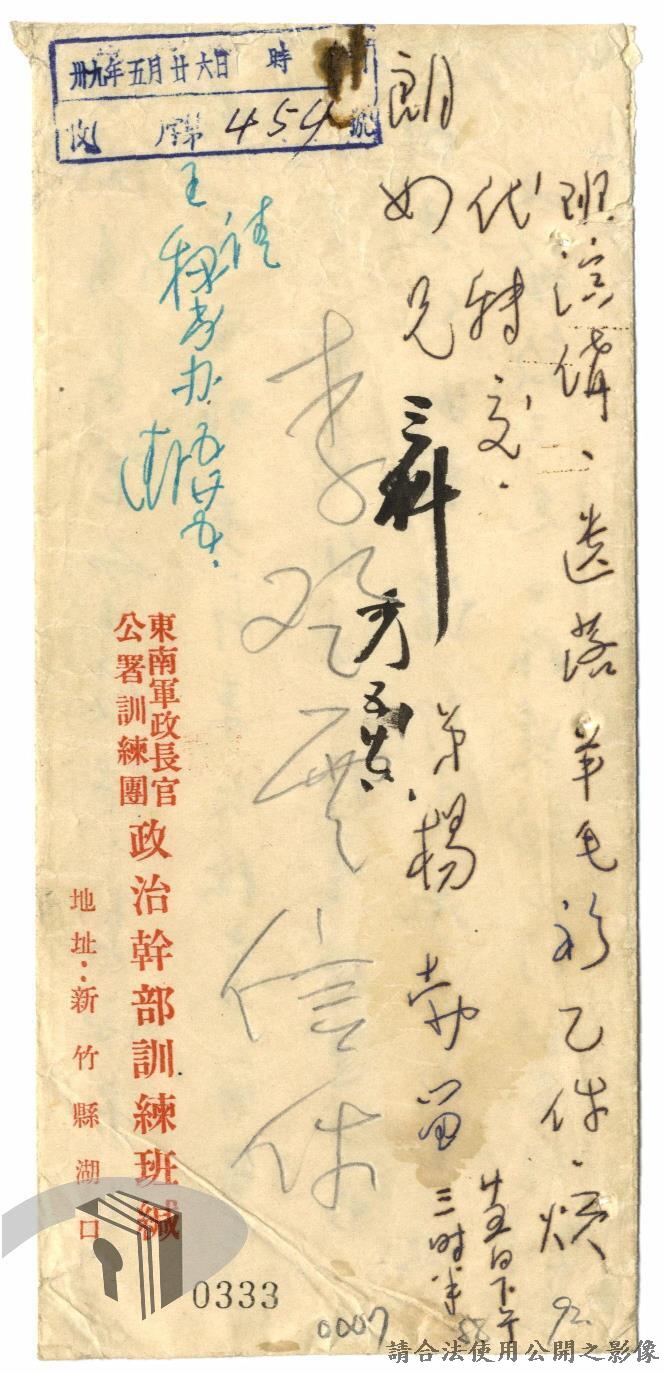 卅九年五月廿六日 時
收 字第 454 號
班演講、遺落羊毛衫乙件、煩
代轉交、
朗
如兄
弟楊 留
廿五日下午
三时半
三科
請
王
办 五、廿五、
李 信件
東南軍政長官
公署訓練團
政治幹部訓練班緘
地址:新竹縣湖口
0333
0007
92.
請合法使用公開之影像